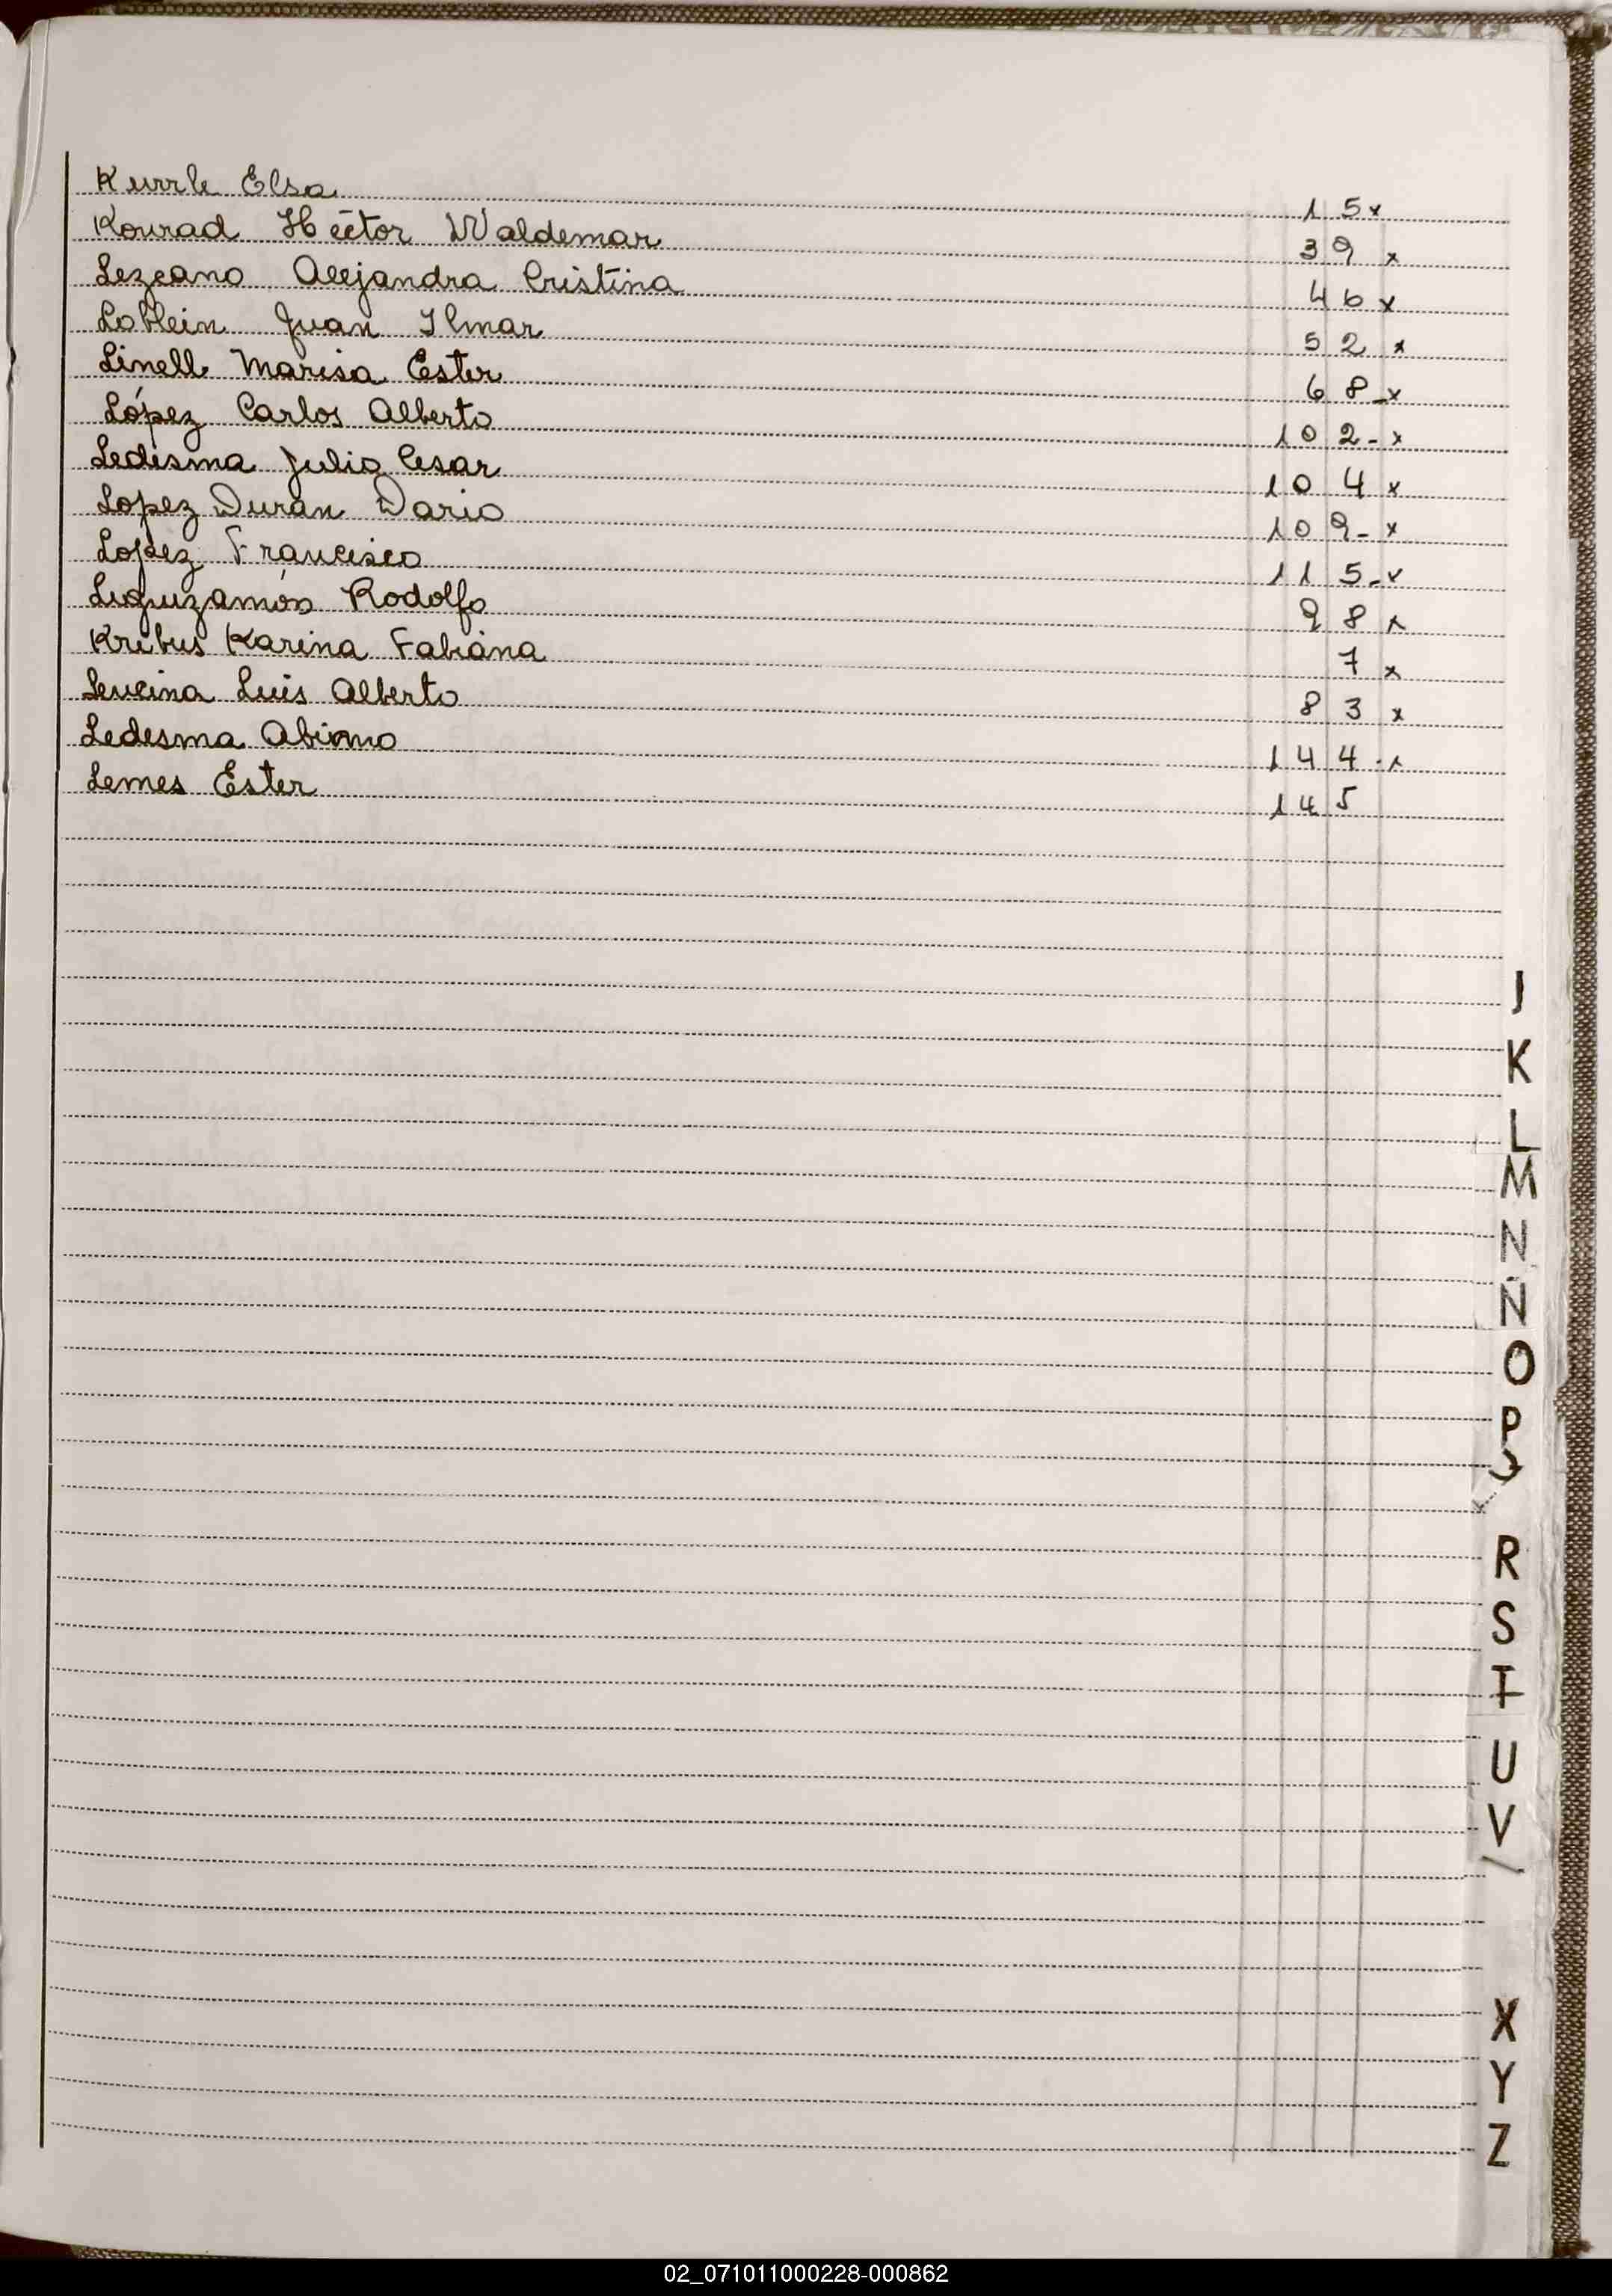 Kurrle Elsa 15 x
Konrad Héctor Waldemar 39 x
Lezcano Alejandra Cristina 46 x
Loblein Juan Ilmar 52 x
Linell Marisa Ester 68 - x
López Carlos Alberto 102 - x
Ledesma Julio Cesar 104 x
Lopez Durán Dario 109 - x
Lopez Francisco 115 - x
Leguizamón Rodolfo 98 x
Krebus Karina Fabiana 7 x
Leucina Luis Alberto 83 x
Ledesma 144 - x
Lemes Ester 145
J
K
L
M
N
Ñ
O
P
R
S
T
U
V
X
Y
Z
02_071011000228-000862